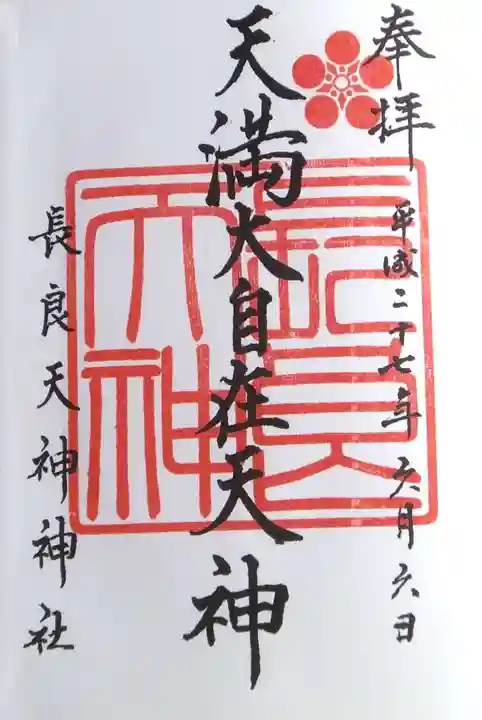 奉拝
平成二十七年六月六日
天満大自在天神
長良天神神社
長良天神